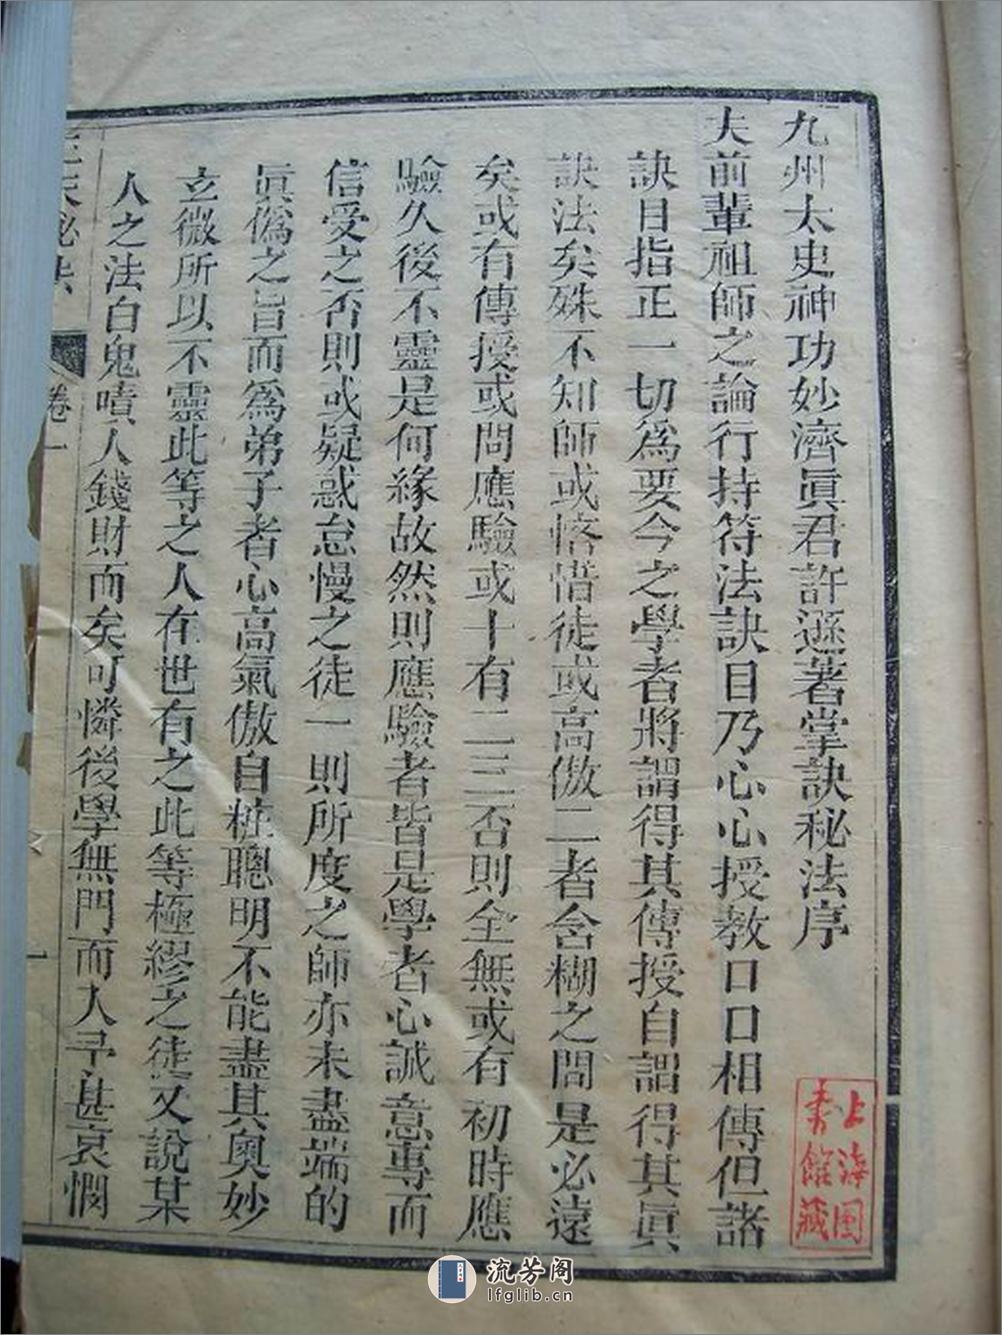 九州太史神功妙濟眞君許遜著掌訣秘法序
夫前輩祖師之論行持符法訣目乃心心授教口口相傳但諸
訣目指正一切爲要今之學者將謂得其傳授自謂得其眞
訣法矣殊不知師或悋惜徒或高傲二者含糊之間是必遠
矣或有傳授或問應驗或十有二三否則全無或有初時應
驗久後不靈是何緣故然則應驗者皆是學者心誠意專而
信受之否則或疑惑怠慢之徒一則所度之師亦未盡端的
眞僞之旨而爲弟子者心高氣傲自粧聰明不能盡其奧妙
玄微所以不靈此等之人在世有之此等極繆之徒又說某
人之法白鬼嘖人錢財而矣可憐後學無門而入予甚哀憫
三天秘訣
卷一
一
上海圖書館藏
流芳阁
lfglib.cn